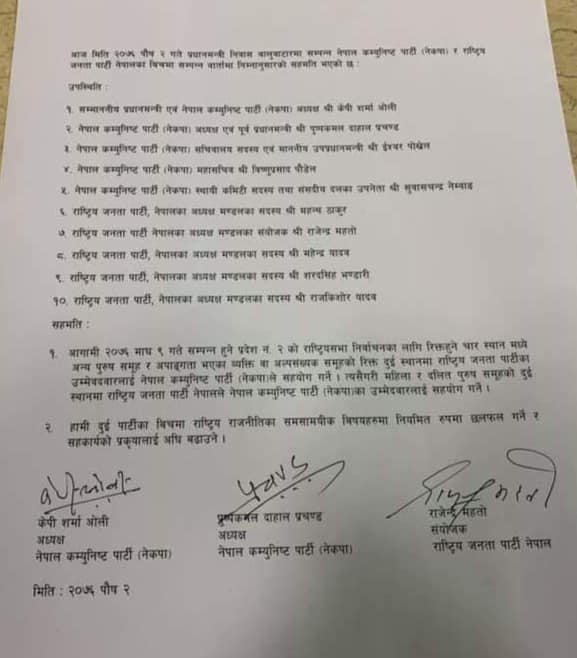 आज मिति २०७६ पौष २ गते प्रधानमन्त्री निवास बालुवाटारमा सम्पन्न नेपाल कम्युनिष्ट पार्टी (नेकपा) र राष्ट्रिय
जनता पार्टी नेपालका बिचमा सम्पन्न वार्तामा निम्नानुसारको सहमति भएको छ :
उपस्थिति :
१. सम्माननीय प्रधानमन्त्री एवं नेपाल कम्युनिष्ट पार्टी (नेकपा) अध्यक्ष श्री केपी शर्मा ओली
२. नेपाल कम्युनिष्ट पार्टी (नेकपा) अध्यक्ष एवं पूर्व प्रधानमन्त्री श्री पुष्पकमल दाहाल प्रचण्ड
३. नेपाल कम्युनिष्ट पार्टी (नेकपा) सचिवालय सदस्य एवं माननीय उपप्रधानमन्त्री श्री ईश्वर पोखेल
४. नेपाल कम्युनिष्ट पार्टी (नेकपा) महासचिव श्री विष्णुप्रसाद पौडेल
५. नेपाल कम्युनिष्ट पार्टी (नेकपा) स्थायी कमिटी सदस्य तथा संसदीय दलका उपनेता श्री सुवासचन्द्र नेम्वाङ
६. राष्ट्रिय जनता पार्टी, नेपालका अध्यक्ष मण्डलका सदस्य श्री महन्थ ठाकुर
७. राष्ट्रिय जनता पार्टी नेपालका अध्यक्ष मण्डलका संयोजक श्री राजेन्द्र महतो
८. राष्ट्रिय जनता पार्टी, नेपालका अध्यक्ष मण्डलका सदस्य श्री महेन्द्र यादव
९. राष्ट्रिय जनता पार्टी, नेपालका अध्यक्ष मण्डलका सदस्य श्री शरदसिंह भण्डारी
१०. राष्ट्रिय जनता पार्टी, नेपालका अध्यक्ष मण्डलका सदस्य श्री राजकिशोर यादव
सहमति :
१. आगामी २०७६ माघ ९ गते सम्पन्न हुने प्रदेश नं. २ को राष्ट्रियसभा निर्वाचनका लागि रिक्तहुने चार स्थान मध्ये
अन्य पुरुष समूह र अपाङ्गता भएका व्यक्ति वा अल्पसंख्यक समूहको रिक्त दुई स्थानमा राष्ट्रिय जनता पार्टीका
उम्मेदवारलाई नेपाल कम्युनिष्ट पार्टी (नेकपा)ले सहयोग गर्ने । त्यसैगरी महिला र दलित पुरुष समूहको दुई
स्थानमा राष्ट्रिय जनता पार्टी नेपालले नेपाल कम्युनिष्ट पार्टी (नेकपा)का उम्मेदवारलाई सहयोग गर्ने ।
२. हामी दुई पार्टीका बिचमा राष्ट्रिय राजनीतिका समसामयीक बिषयहरुमा नियमित रुपमा छलफल गर्ने र
सहकार्यको प्रकृयालाई अघि बढाउने ।
केपी शर्मा ओली
अध्यक्ष
नेपाल कम्युनिष्ट पार्टी (नेकपा)
पुष्पकमल दाहाल प्रचण्ड
अध्यक्ष
नेपाल कम्युनिष्ट पार्टी (नेकपा)
राजेन्द्र महतो
संयोजक
राष्ट्रिय जनता पार्टी नेपाल
मिति : २०७६ पौष २